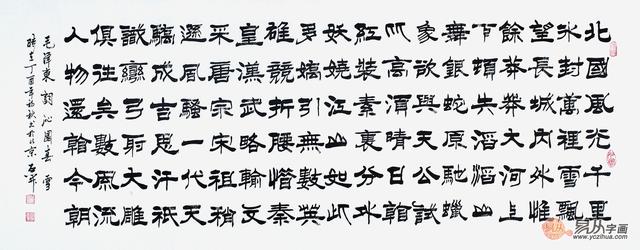 北國風光千里
冰封萬里雪飄
望長城內外惟
餘莽莽大河上
下頓失滔滔山
舞銀蛇原馳蠟
象欲與天公試
比高須晴日看
紅裝素裹分外
妖嬈江山如此
多嬌引無數英
雄競折腰惜秦
皇漢武略輸文
采唐宗宋祖稍
遜風騷一代天
驕成吉思汗祇
識彎弓射大雕
俱往矣數風流
人物還看今朝
毛澤東詞沁園春雪
丁酉年初秋書於北京
易从字画
www.yczihua.com